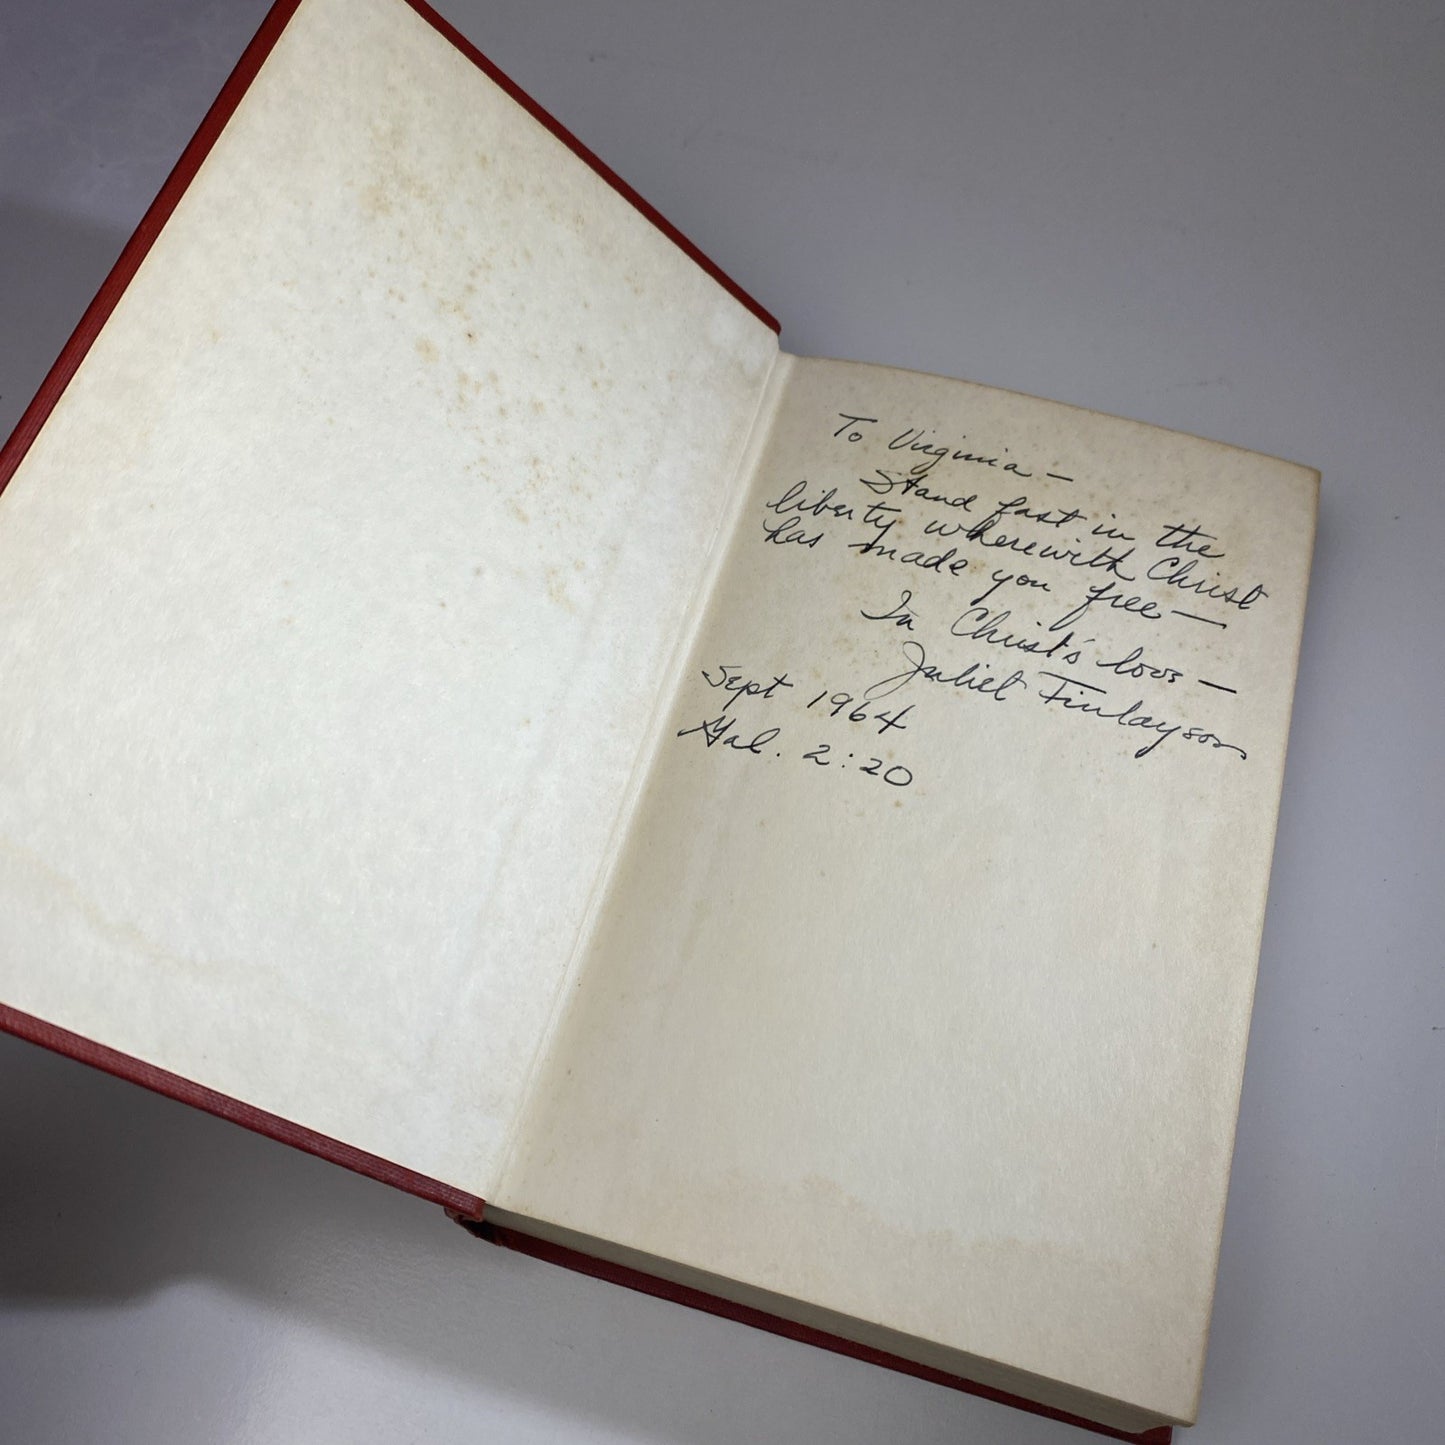 To Virginia —
Stand fast in the
liberty wherewith Christ
has made you free —
In Christ's love —
Juliet Finlayson
Sept 1964
Gal. 2:20